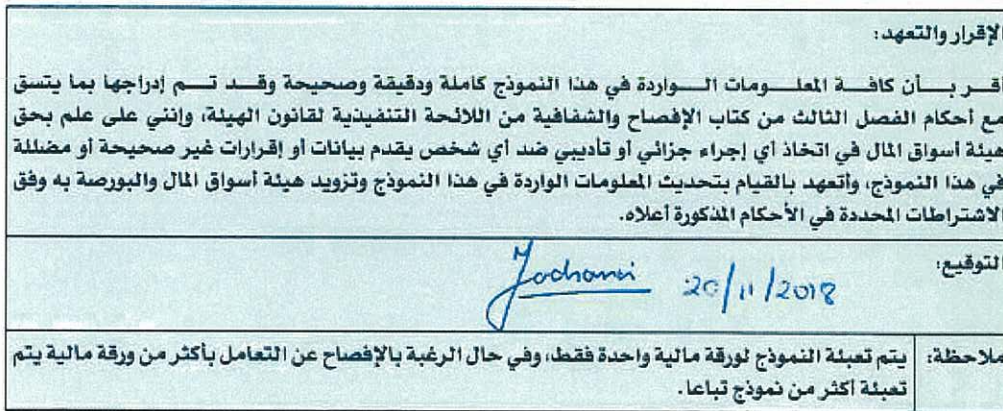 الإقرار والتعهد:
قر بأن كافة المعلومات الواردة في هذا النموذج كاملة ودقيقة وصحيحة وقد تم إدراجها بما يتسق
مع أحكام الفصل الثالث من كتاب الإفصاح والشفافية من اللائحة التنفيذية لقانون الهيئة، وإنني على علم بحق
هيئة أسواق المال في اتخاذ أي إجراء جزائي أو تأديبي ضد أي شخص يقدم بيانات أو إقرارات غير صحيحة أو مضللة
في هذا النموذج، وأتعهد بالقيام بتحديث المعلومات الواردة في هذا النموذج وتزويد هيئة أسواق المال والبورصة به وفق
الاشتراطات المحددة في الأحكام المذكورة أعلاه.
التوقيع:
20/11/2018
ملاحظة: يتم تعبئة النموذج لورقة مالية واحدة فقط، وفي حال الرغبة بالإفصاح عن التعامل بأكثر من ورقة مالية يتم
تعبئة أكثر من نموذج تباعا.